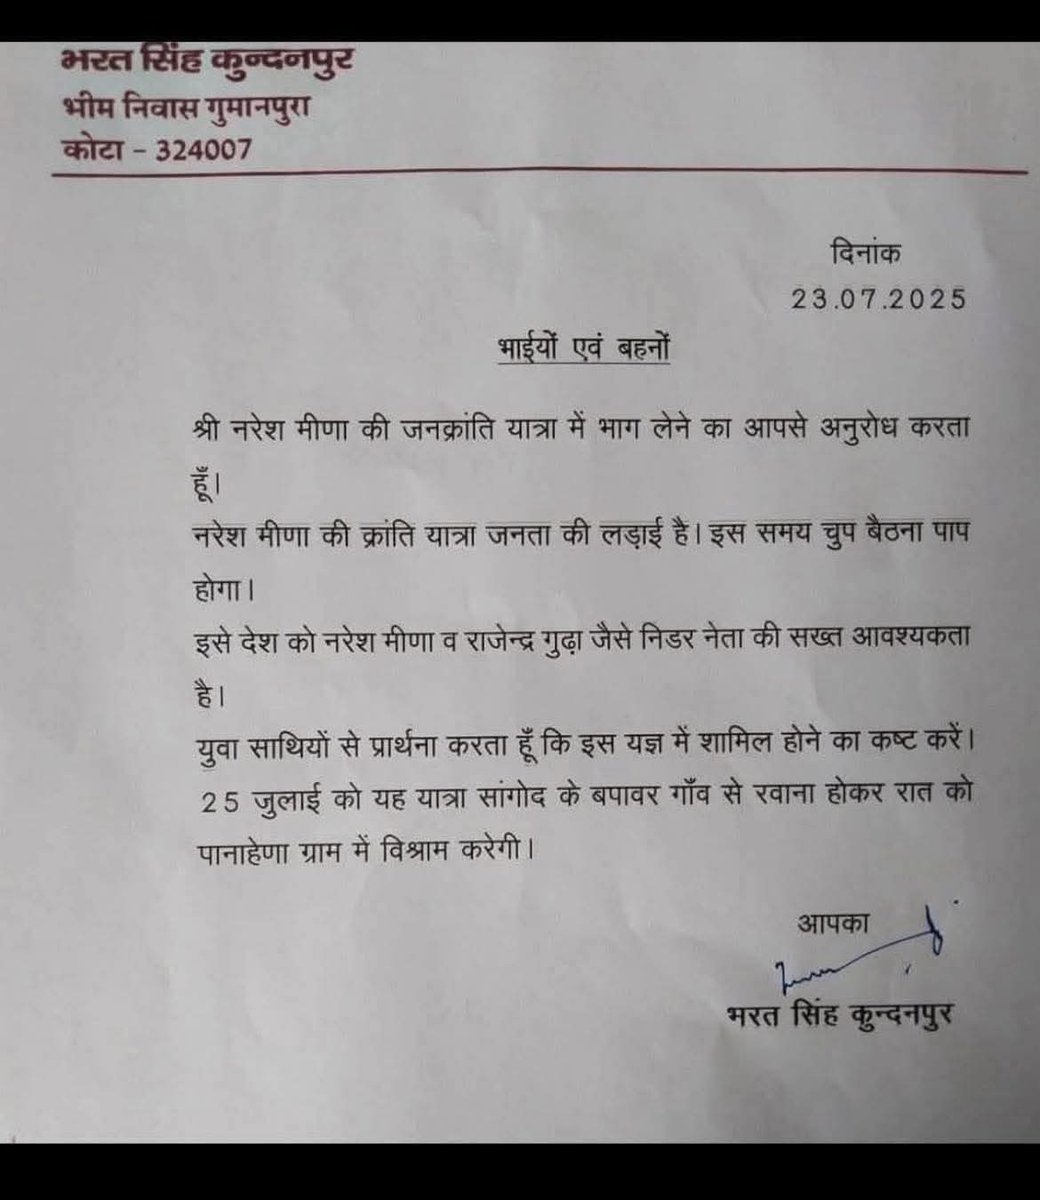 भरत सिंह कुन्दनपुर
भीम निवास गुमानपुरा
कोटा - 324007
दिनांक
23.07.2025
भाईयों एवं बहनों
श्री नरेश मीणा की जनक्रांति यात्रा में भाग लेने का आपसे अनुरोध करता
हूँ।
नरेश मीणा की क्रांति यात्रा जनता की लड़ाई है। इस समय चुप बैठना पाप
होगा।
इसे देश को नरेश मीणा व राजेन्द्र गुढ़ा जैसे निडर नेता की सख्त आवश्यकता
है।
युवा साथियों से प्रार्थना करता हूँ कि इस यज्ञ में शामिल होने का कष्ट करें।
25 जुलाई को यह यात्रा सांगोद के बपावर गाँव से रवाना होकर रात को
पानाहेणा ग्राम में विश्राम करेगी।
आपका
भरत सिंह कुन्दनपुर